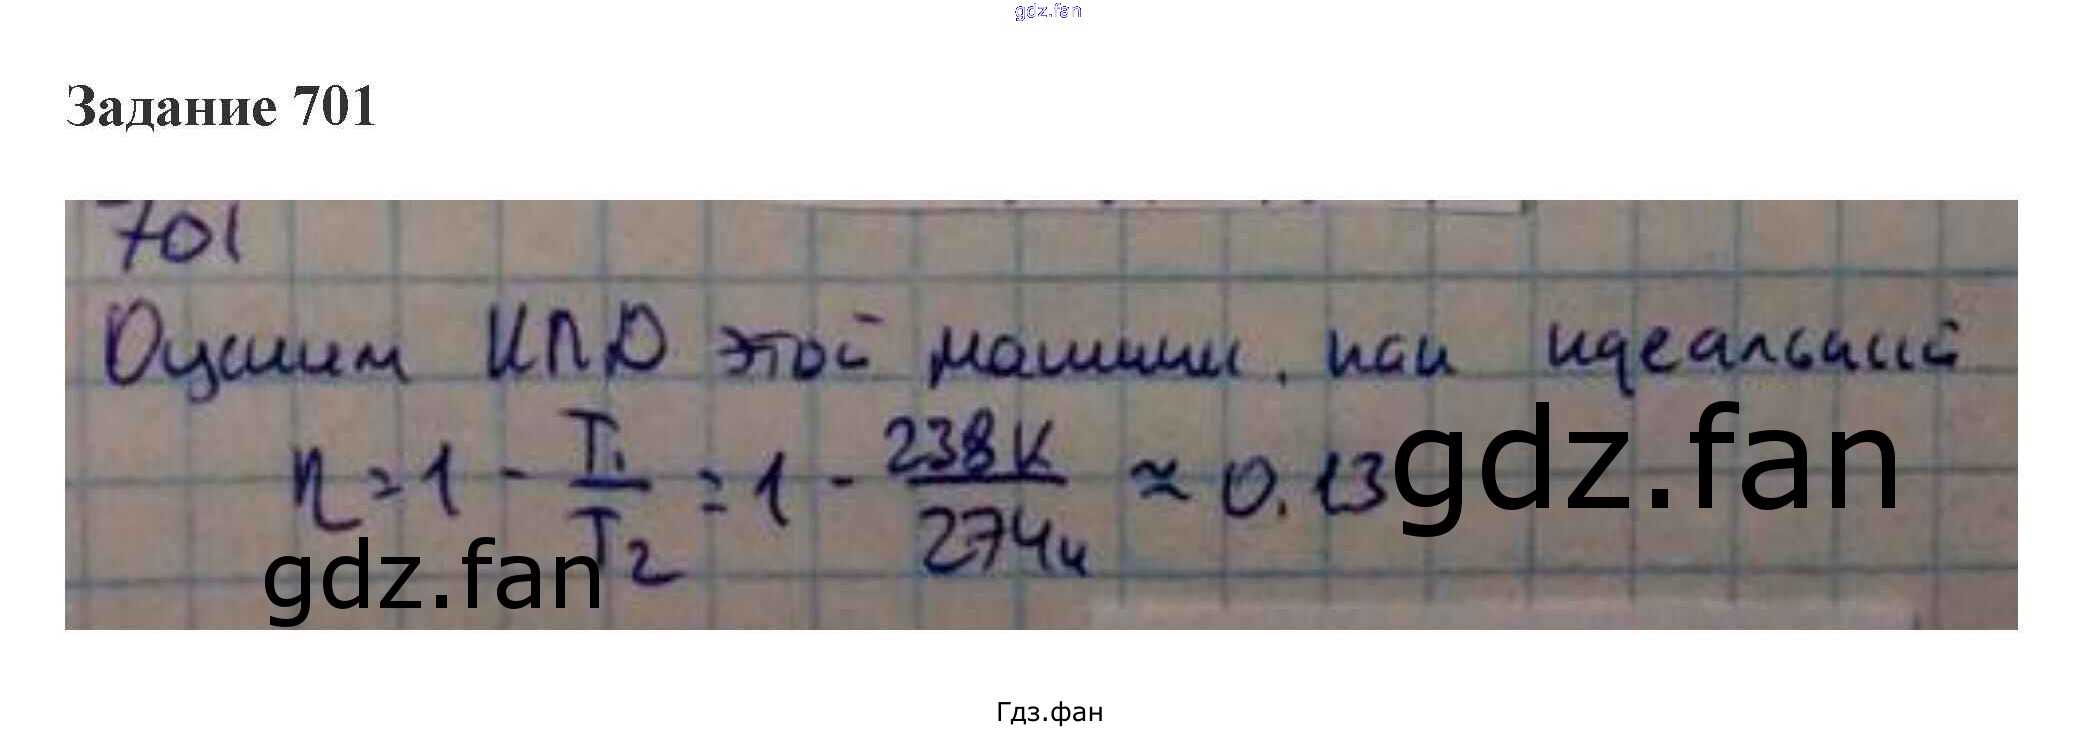 gdz.fan
Задание 701
701
Оценим КПД этой машины, как идеальный
η = 1 - T₁/T₂ = 1 - 238К/274К ≈ 0.13
gdz.fan
gdz.fan
Гдз.фан